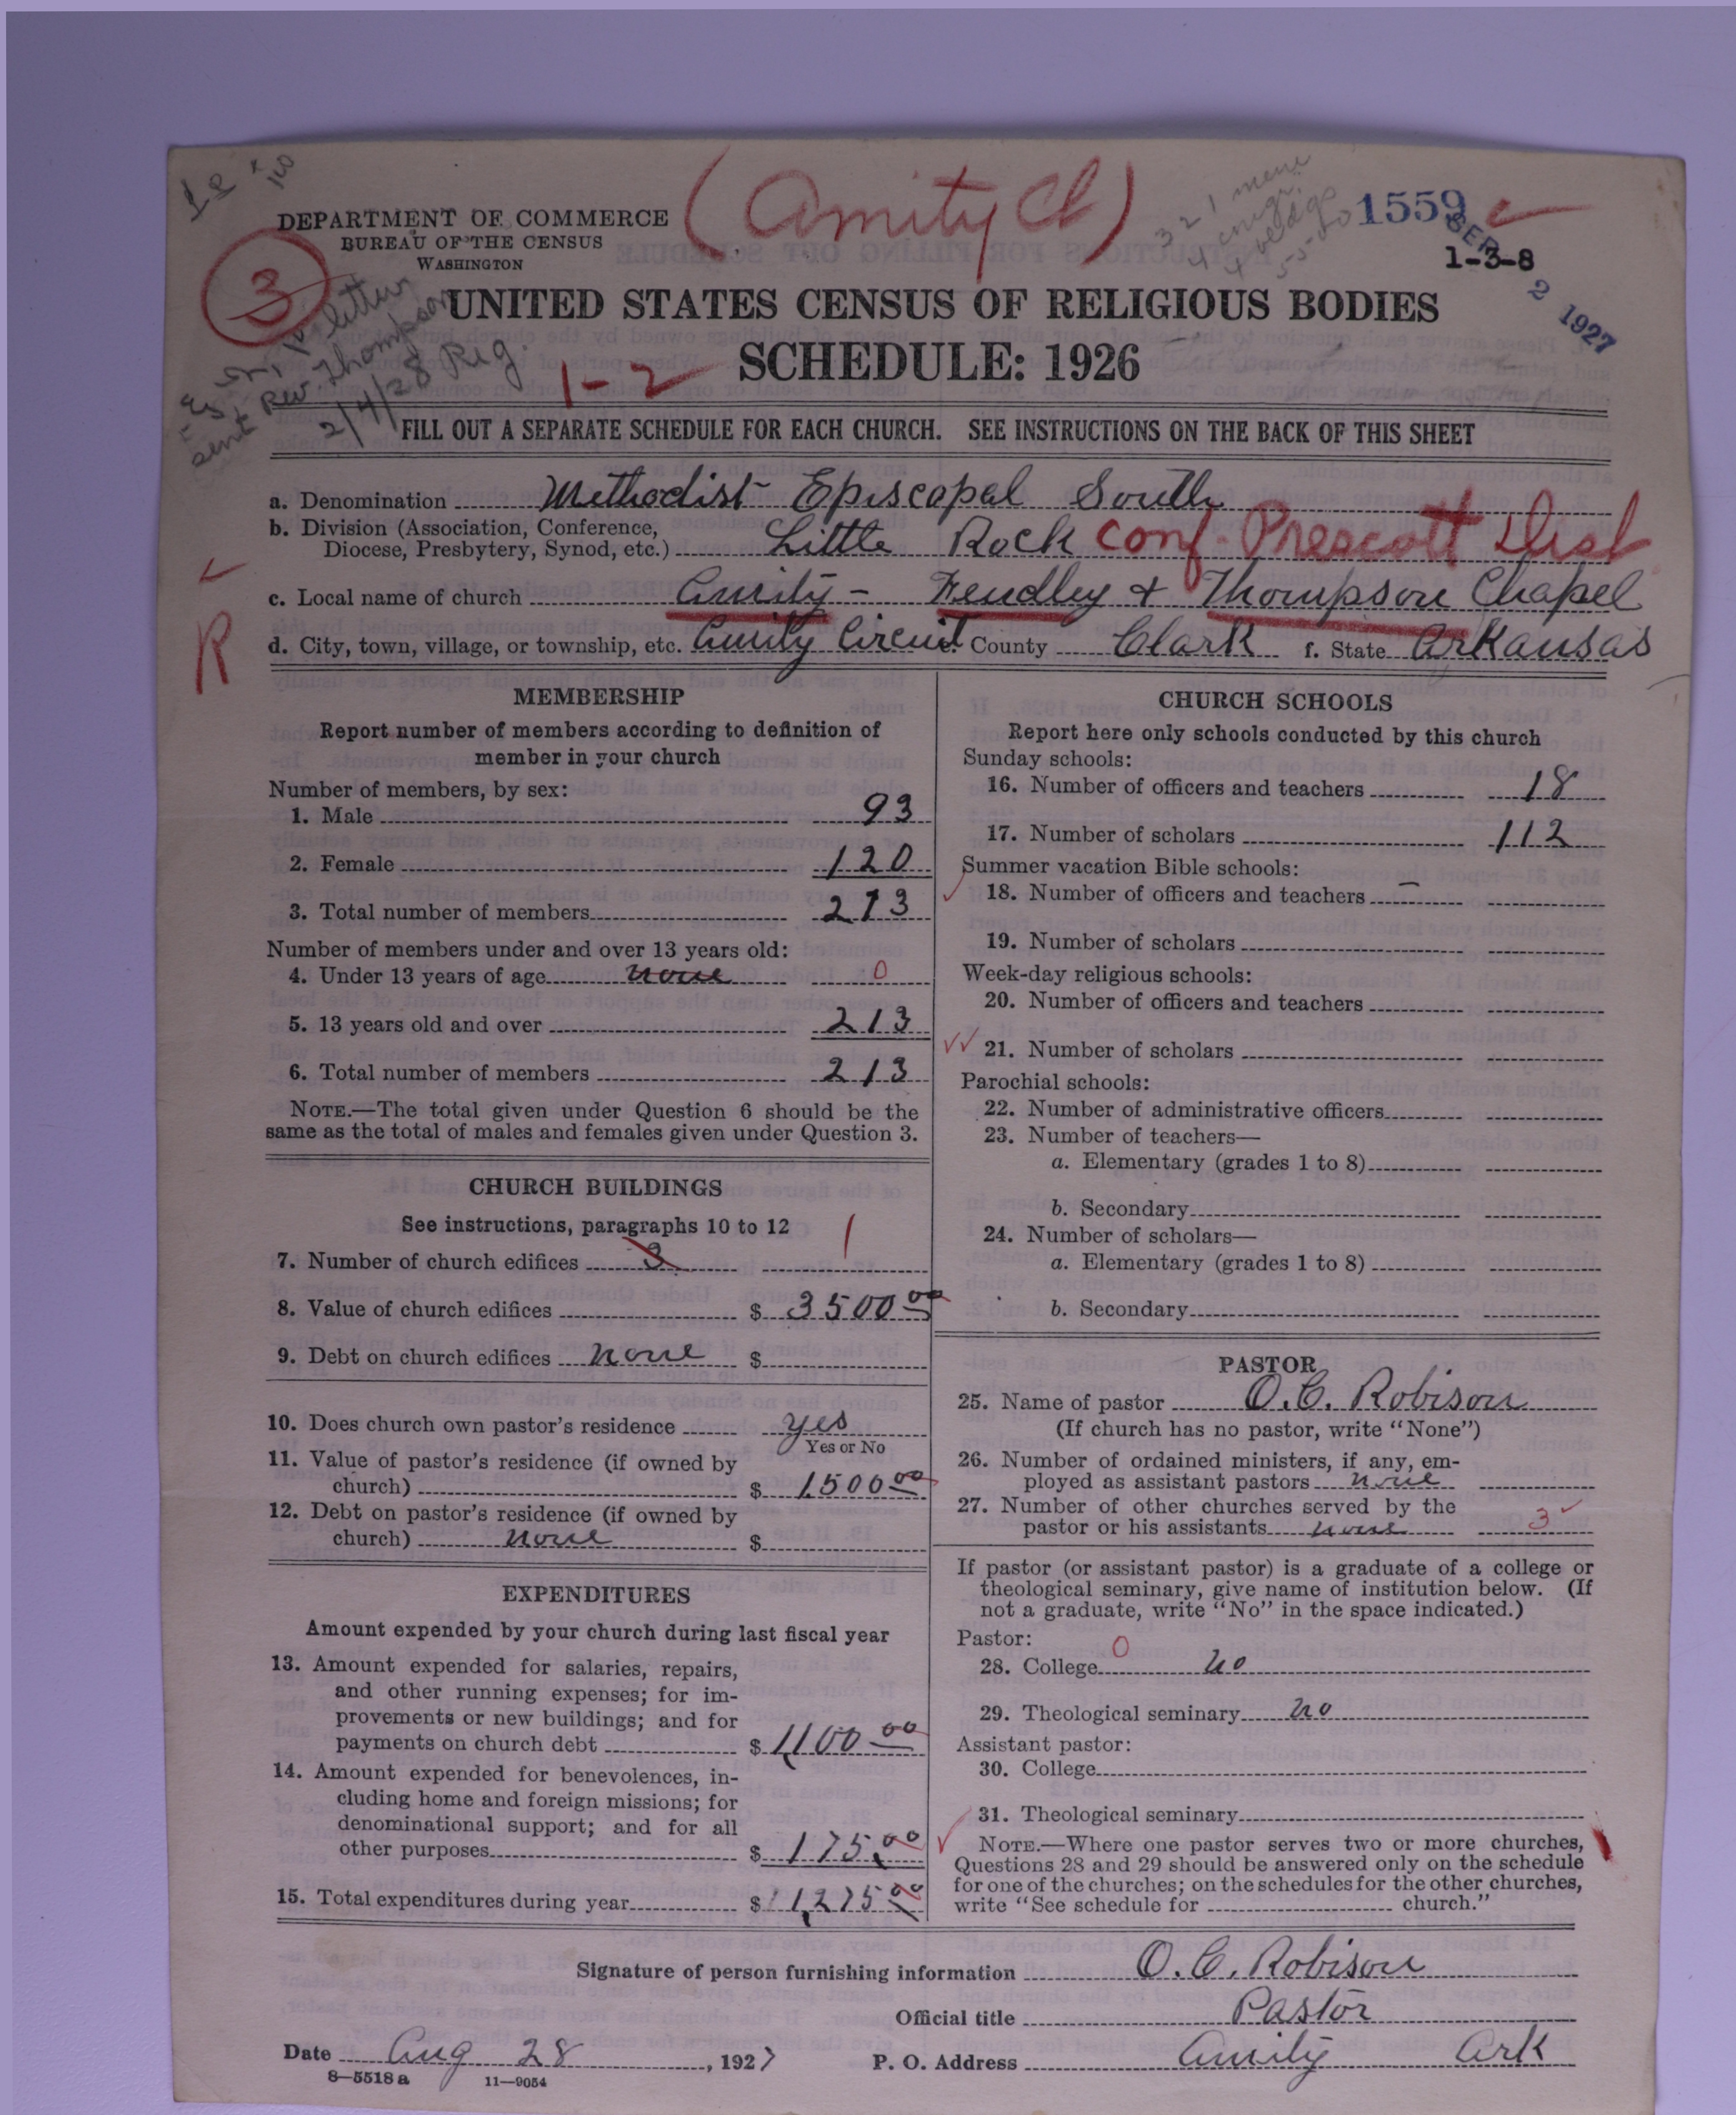 (Amity Ch)
1559
DEPARTMENT OF COMMERCE
BUREAU OF THE CENSUS
WASHINGTON
1-3-8
SEP 2 1927
3
UNITED STATES CENSUS OF RELIGIOUS BODIES
SCHEDULE: 1926
sent Rev. Thompson
2/4/28 Reg.
1-2
FILL OUT A SEPARATE SCHEDULE FOR EACH CHURCH. SEE INSTRUCTIONS ON THE BACK OF THIS SHEET
a. Denomination Methodist Episcopal South
b. Division (Association, Conference,
Diocese, Presbytery, Synod, etc.) Little Rock Conf. Prescott Dist
c. Local name of church Amity - Fendley + Thompson Chapel
R
d. City, town, village, or township, etc. Amity Circuit County Clark f. State Arkansas
MEMBERSHIP
Report number of members according to definition of
member in your church
Number of members, by sex:
1. Male 93
2. Female 120
3. Total number of members 213
Number of members under and over 13 years old:
4. Under 13 years of age none 0
5. 13 years old and over 213
6. Total number of members 213
NOTE.—The total given under Question 6 should be the
same as the total of males and females given under Question 3.
CHURCH BUILDINGS
See instructions, paragraphs 10 to 12
7. Number of church edifices 3 1
8. Value of church edifices $ 3500 00
9. Debt on church edifices none $
10. Does church own pastor's residence yes
Yes or No
11. Value of pastor's residence (if owned by
church) $ 1500 00
12. Debt on pastor's residence (if owned by
church) none $
EXPENDITURES
Amount expended by your church during last fiscal year
13. Amount expended for salaries, repairs,
and other running expenses; for im-
provements or new buildings; and for
payments on church debt $ 1,100 00
14. Amount expended for benevolences, in-
cluding home and foreign missions; for
denominational support; and for all
other purposes $ 175.00
15. Total expenditures during year $ 1,275 00
CHURCH SCHOOLS
Report here only schools conducted by this church
Sunday schools:
16. Number of officers and teachers 18
17. Number of scholars 112
Summer vacation Bible schools:
18. Number of officers and teachers —
19. Number of scholars
Week-day religious schools:
20. Number of officers and teachers
21. Number of scholars
Parochial schools:
22. Number of administrative officers
23. Number of teachers—
a. Elementary (grades 1 to 8)
b. Secondary
24. Number of scholars—
a. Elementary (grades 1 to 8)
b. Secondary
PASTOR
25. Name of pastor O. C. Robison
(If church has no pastor, write "None")
26. Number of ordained ministers, if any, em-
ployed as assistant pastors none
27. Number of other churches served by the
pastor or his assistants none 3
If pastor (or assistant pastor) is a graduate of a college or
theological seminary, give name of institution below. (If
not a graduate, write "No" in the space indicated.)
Pastor:
28. College 0 no
29. Theological seminary no
Assistant pastor:
30. College
31. Theological seminary
NOTE.—Where one pastor serves two or more churches,
Questions 28 and 29 should be answered only on the schedule
for one of the churches; on the schedules for the other churches,
write "See schedule for church."
Signature of person furnishing information O. C. Robison
Official title Pastor
Date Aug 28, 1927 P. O. Address Amity Ark
8—5518a 11—9054